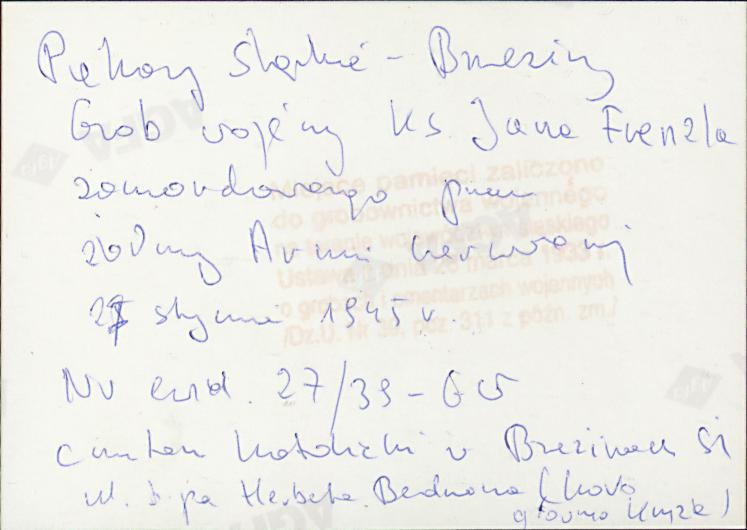 Piekary Śląskie - Brzeziny
Grób wojenny Ks. Jana Frenzla
zamordowanego przez
żołnierzy Armii Czerwonej
27 stycznia 1945 r.
Nr ewid. 27/39-GW
cmentarz katolicki w Brzezinach Śl
ul. Herberta Bednorza (koło
głównego krzyża)
Miejsce pamięci zaliczone
do grobownictwa wojennego
na terenie województwa śląskiego
Ustawa z dnia 28 marca 1933 r.
o grobach i cmentarzach wojennych
/Dz.U. Nr 39, poz. 311 z późn. zm./
AGFA